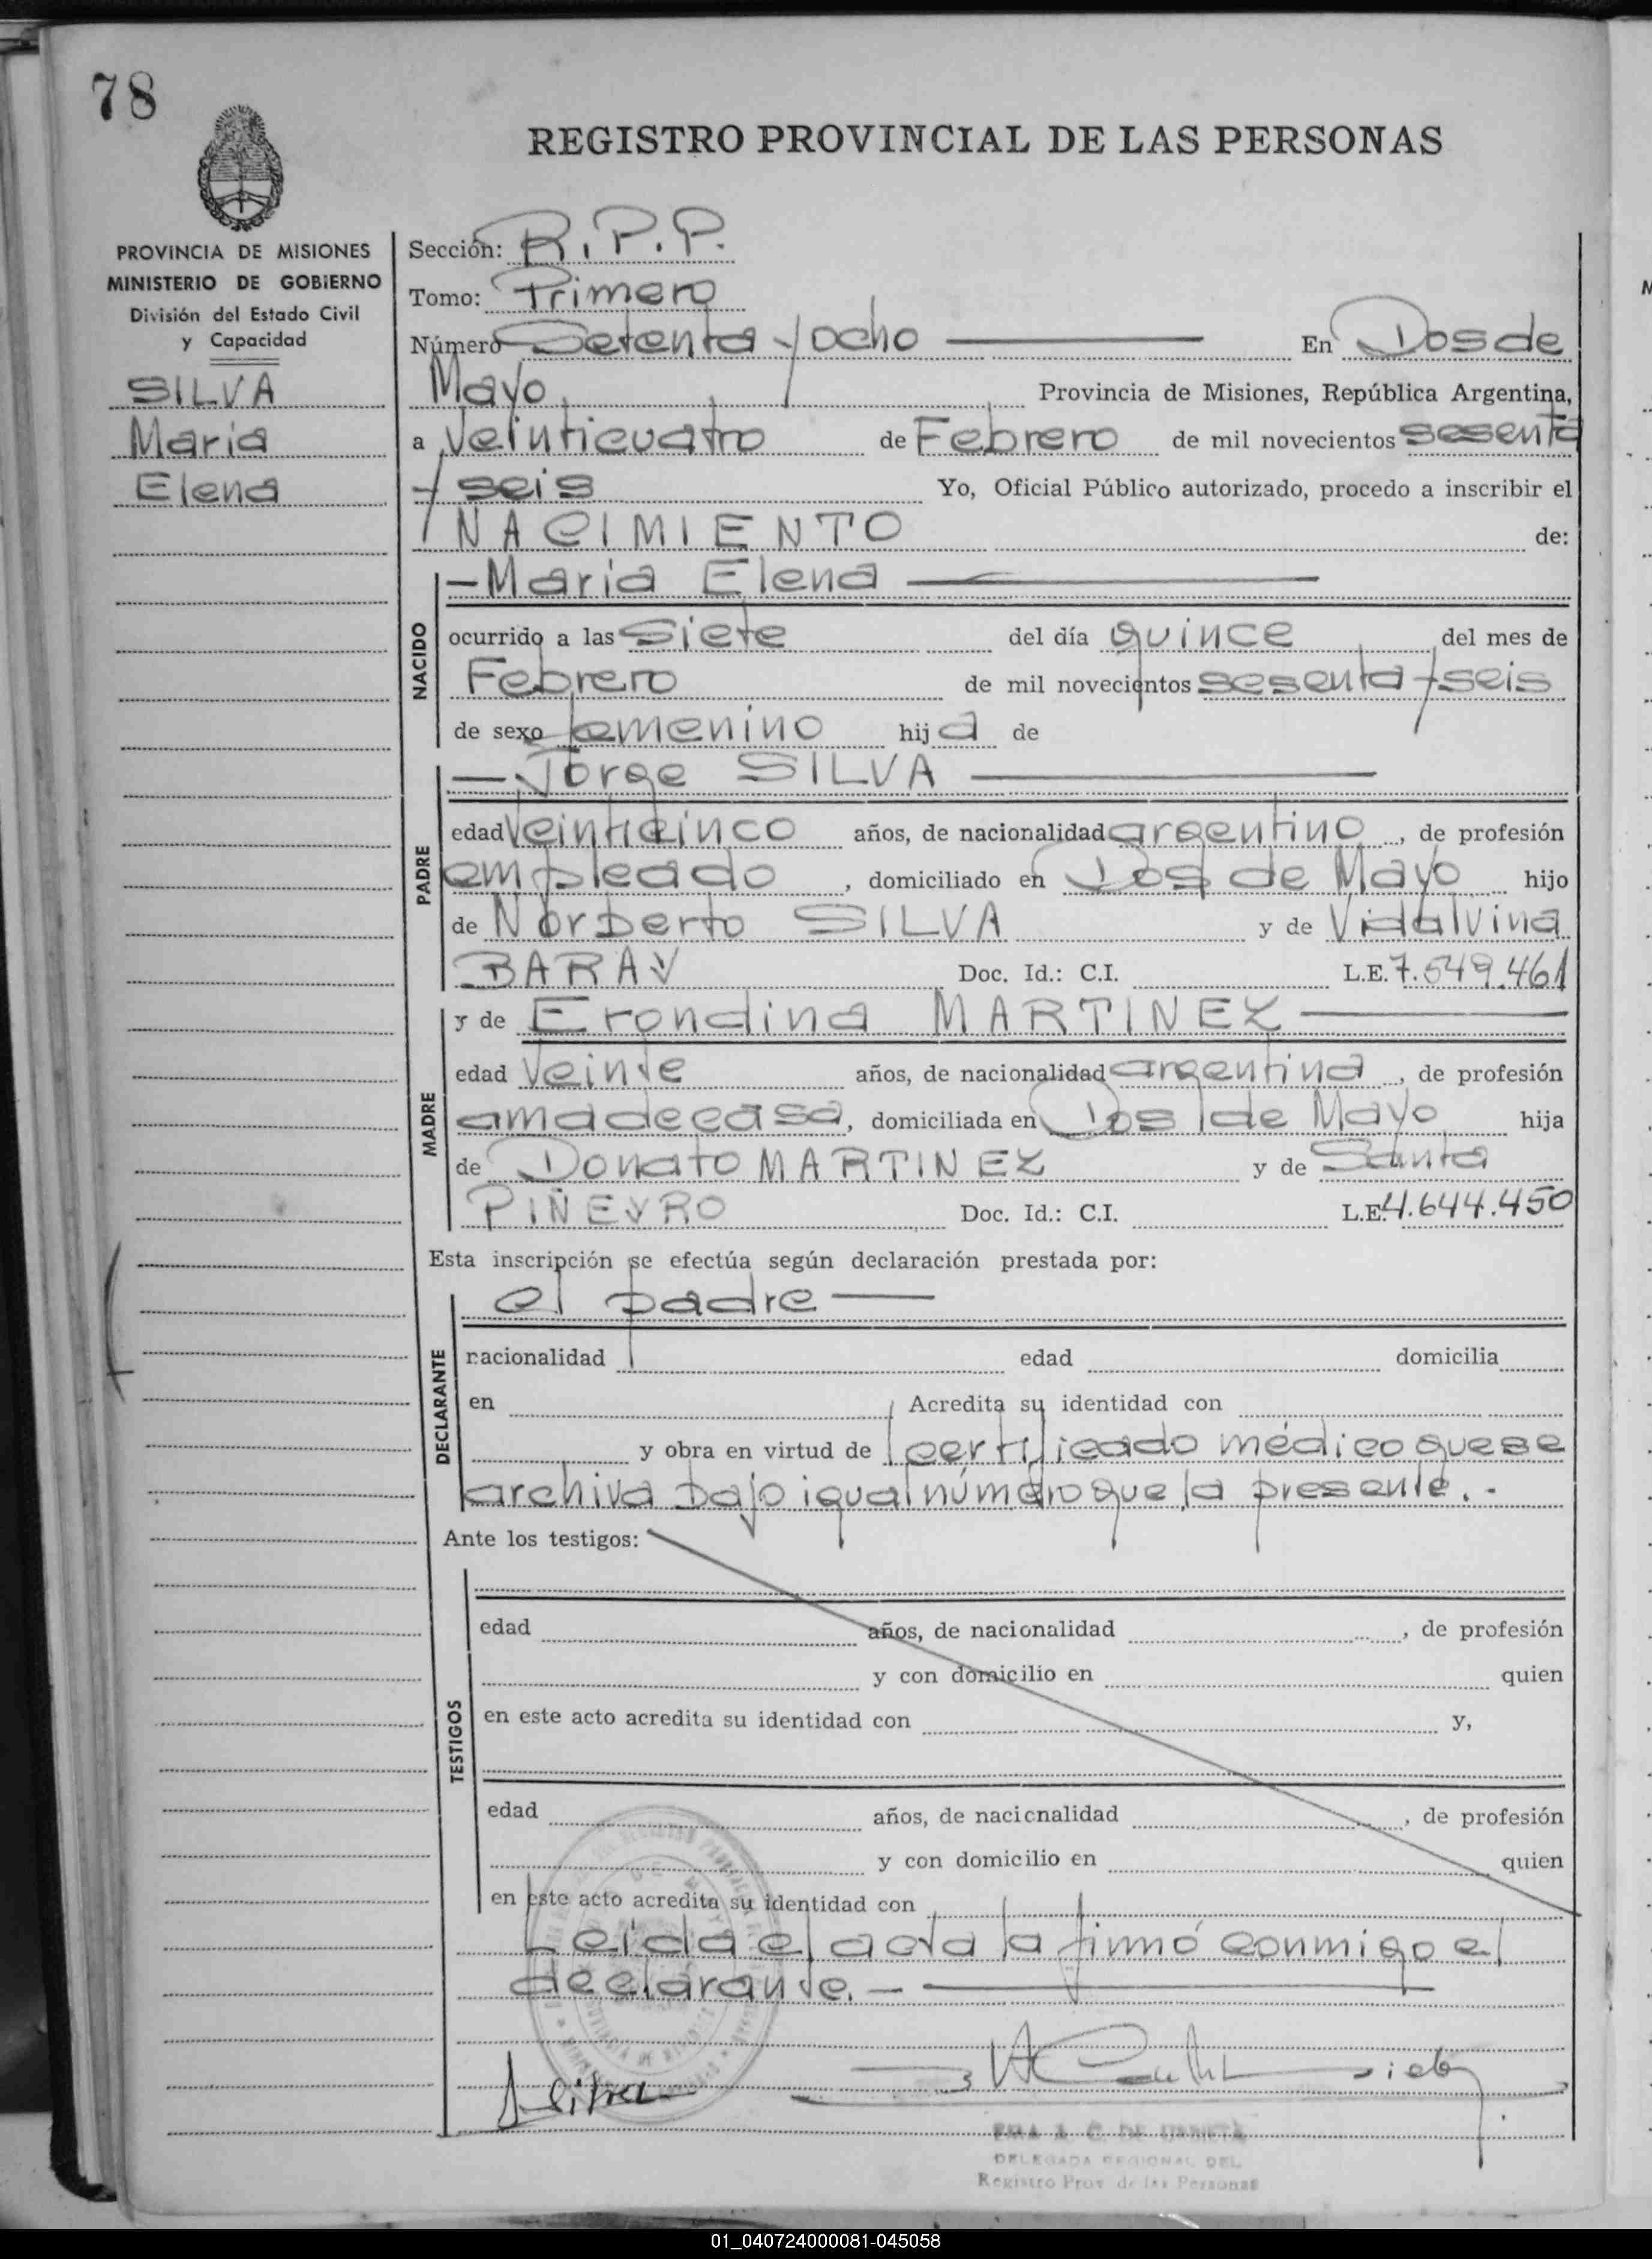 78
REGISTRO PROVINCIAL DE LAS PERSONAS
PROVINCIA DE MISIONES
MINISTERIO DE GOBIERNO
División del Estado Civil
y Capacidad
SILVA
María
Elena
Sección: R.P.P.
Tomo: Primero
Número Setenta y ocho En Dos de
Mayo, Provincia de Misiones, República Argentina,
a Veinticuatro de Febrero de mil novecientos sesenta
y seis Yo, Oficial Público autorizado, procedo a inscribir el
NACIMIENTO de:
NACIDO
-María Elena
ocurrido a las Siete del día quince del mes de
Febrero de mil novecientos sesenta y seis
de sexo femenino hija de
PADRE
Jorge SILVA
edad veinticinco años, de nacionalidad argentino, de profesión
empleado, domiciliado en Dos de Mayo hijo
de Norberto SILVA y de Vidalvina
BARAY Doc. Id.: C.I. L.E. 7.549.461
MADRE
y de Erondina MARTINEZ
edad Veinte años, de nacionalidad argentina, de profesión
ama de casa, domiciliada en Dos de Mayo hija
de Donato MARTINEZ y de Santa
PIÑEYRO Doc. Id.: C.I. L.E. 4.644.450
Esta inscripción se efectúa según declaración prestada por:
DECLARANTE
el padre
nacionalidad edad domicilia
en Acredita su identidad con
y obra en virtud de certificado médico que se
archiva bajo igual número que la presente.-
Ante los testigos:
TESTIGOS
edad años, de nacionalidad , de profesión
y con domicilio en quien
en este acto acredita su identidad con y,
edad años, de nacionalidad , de profesión
y con domicilio en quien
en este acto acredita su identidad con
Leída el acta la firmó conmigo el
declarante.-
J. Silva
DELEGADA REGIONAL DEL
Registro Prov. de las Personas
01_040724000081-045058